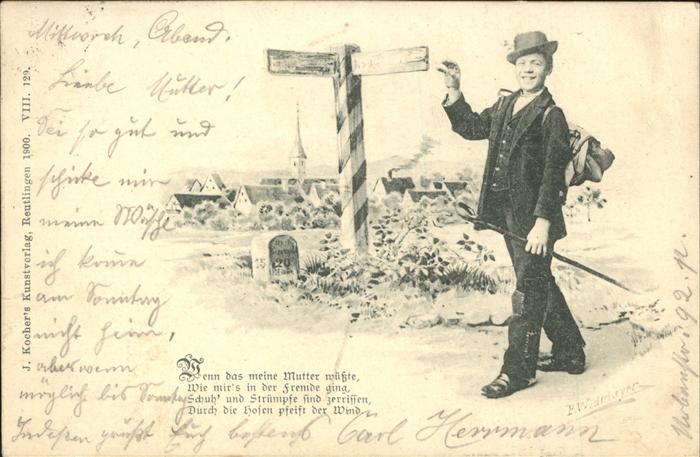 Mittwoch, Abend.
Liebe Mutter!
Sei so gut und
schicke mir
meine Wäsche
ich kome
am Sonntag
nicht heim,
aber wenn
möglich bis Sonntag
Indeßen grüßt Euch bestens Carl Herrmann
J. Kocher's Kunstverlag, Reutlingen 1900. VIII. 129.
Wenn das meine Mutter wüßte,
Wie mir's in der Fremde ging,
Schuh' und Strümpfe sind zerrissen,
Durch die Hosen pfeift der Wind.